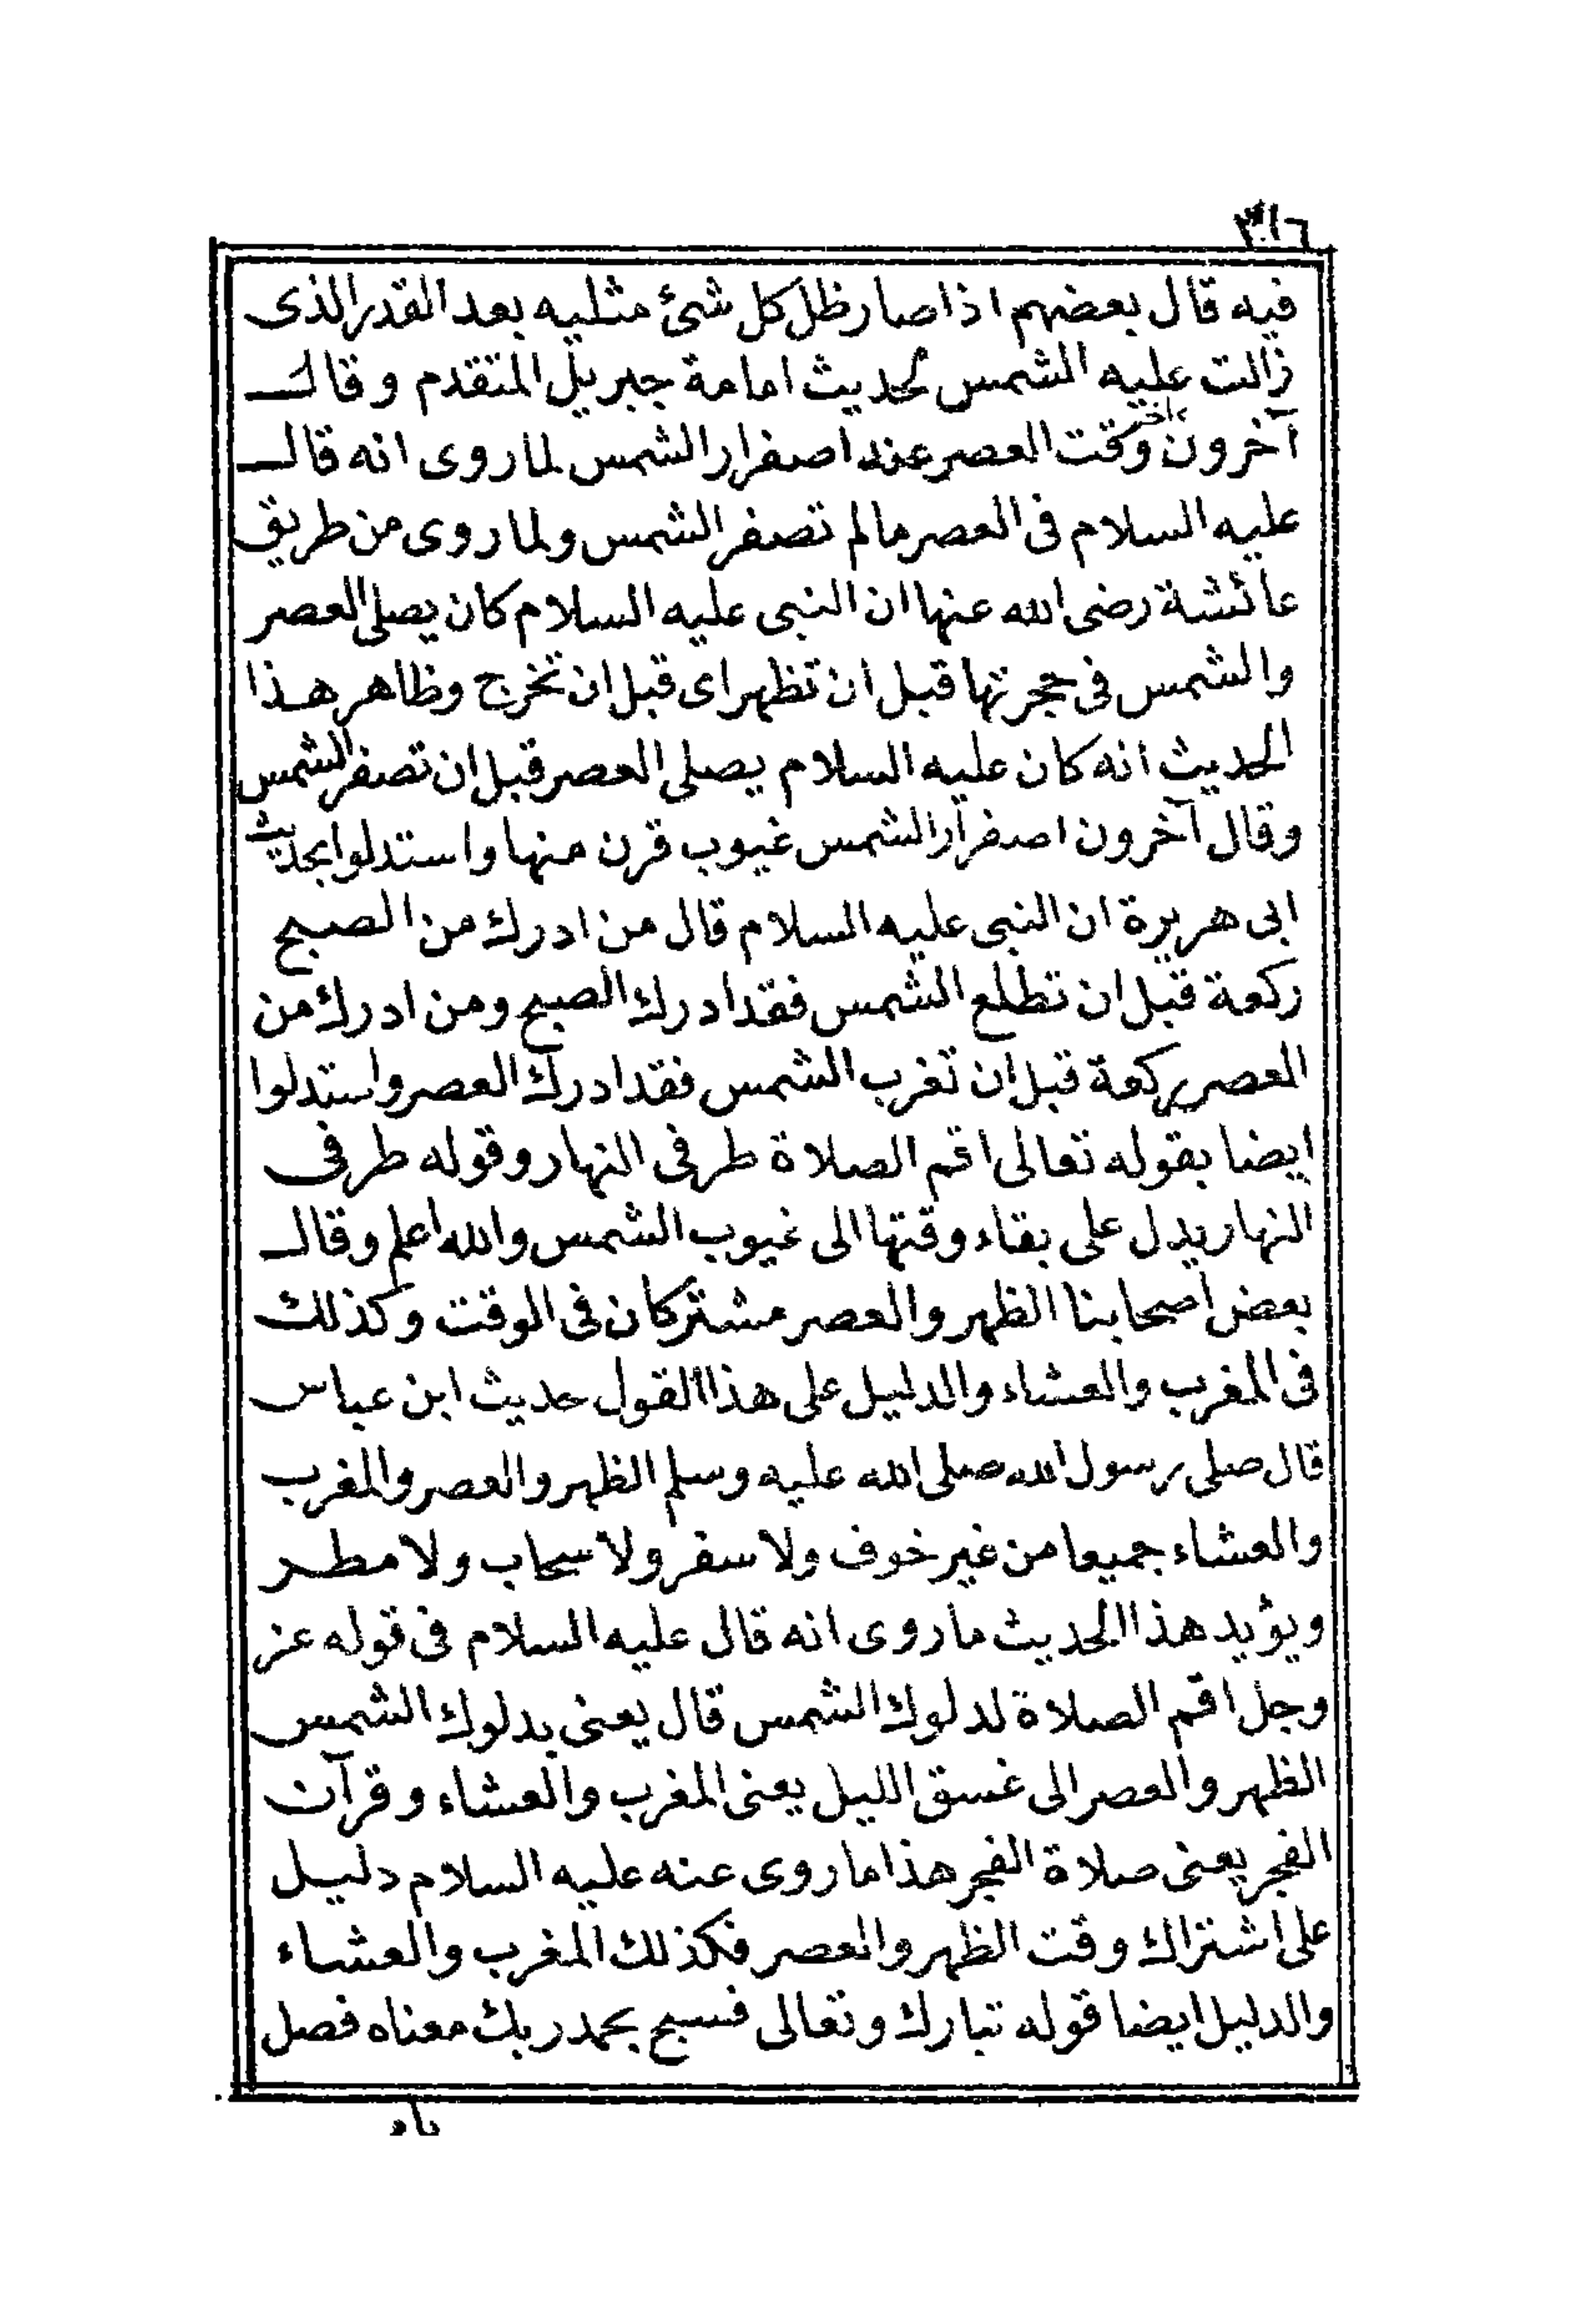 ٣١٦
فيه قال بعضهم اذا صار ظل كل شئ مثليه بعد القدر الذى
زالت عليه الشمس لحديث امامة جبريل المتقدم وقال
آخرون آخر وقت العصر عند اصفرار الشمس لما روى انه قال
عليه السلام فى العصر ما لم تصفر الشمس ولما روى من طريق
عائشة رضى الله عنها ان النبى عليه السلام كان يصلى العصر
والشمس فى حجرتها قبل ان تظهر اى قبل ان تخرج وظاهر هذا
الحديث انه كان عليه السلام يصلى العصر قبل ان تصفر الشمس
وقال آخرون اصفرار الشمس غيوب قرن منها واستدلوا بحديث
ابى هريرة ان النبى عليه السلام قال من ادرك من الصبح
ركعة قبل ان تطلع الشمس فقد ادرك الصبح ومن ادرك من
العصر ركعة قبل ان تغرب الشمس فقد ادرك العصر واستدلوا
ايضا بقوله تعالى اقم الصلاة طرفى النهار وقوله طرفى
النهار يدل على بقاء وقتها الى غيوب الشمس والله اعلم وقال
بعض اصحابنا الظهر والعصر مشتركان فى الوقت وكذلك
فى المغرب والعشاء والدليل على هذا القول حديث ابن عباس
قال صلى رسول الله صلى الله عليه وسلم الظهر والعصر والمغرب
والعشاء جميعا من غير خوف ولا سفر ولا سحاب ولا مطر
ويؤيد هذا الحديث ما روى انه قال عليه السلام فى قوله عز
وجل اقم الصلاة لدلوك الشمس قال يعنى بدلوك الشمس
الظهر والعصر الى غسق الليل يعنى المغرب والعشاء وقرآن
الفجر يعنى صلاة الفجر هذا ما روى عنه عليه السلام دليل
على اشتراك وقت الظهر والعصر فكذلك المغرب والعشاء
والدليل ايضا قوله تبارك وتعالى فسبح بحمد ربك معناه فصل